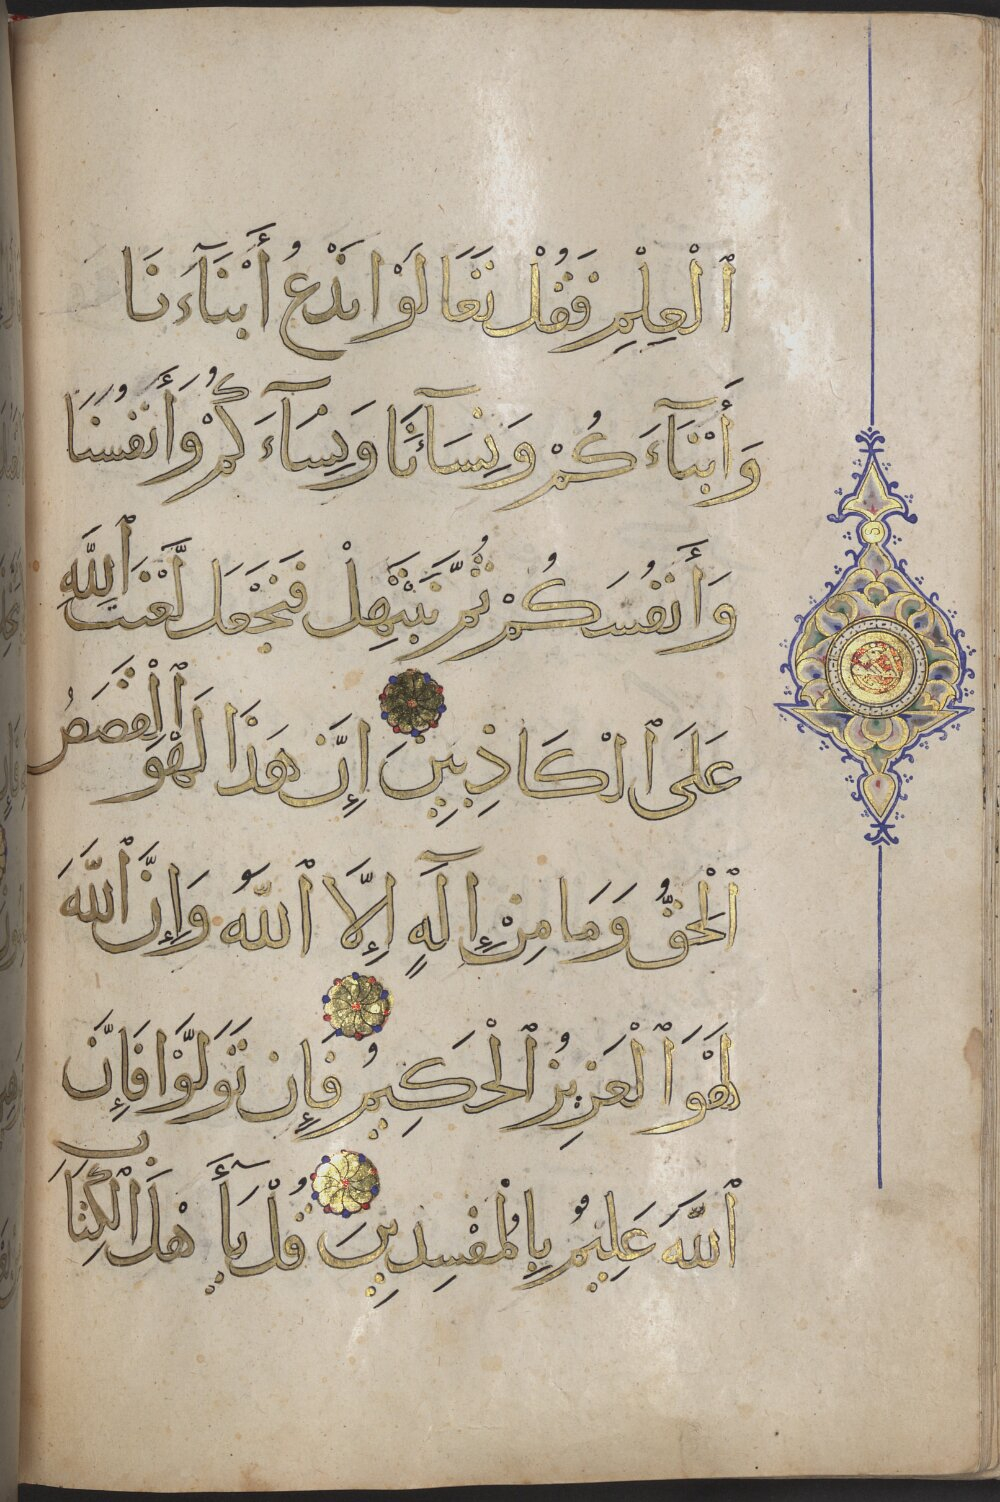 ٱلْعِلْمِ فَقُلْ تَعَالَوْا نَدْعُ أَبْنَآءَنَا
وَأَبْنَآءَكُمْ وَنِسَآءَنَا وَنِسَآءَكُمْ وَأَنفُسَنَا
وَأَنفُسَكُمْ ثُمَّ نَبْتَهِلْ فَنَجْعَل لَّعْنَتَ ٱللَّهِ
عَلَى ٱلْكَاذِبِينَ إِنَّ هَذَا لَهُوَ ٱلْقَصَصُ
ٱلْحَقُّ وَمَا مِنْ إِلَٰهٍ إِلَّا ٱللَّهُ وَإِنَّ ٱللَّهَ
لَهُوَ ٱلْعَزِيزُ ٱلْحَكِيمُ فَإِن تَوَلَّوْا فَإِنَّ
ٱللَّهَ عَلِيمٌ بِالْمُفْسِدِينَ قُلْ يَآأَهْلَ الْكِتَابِ